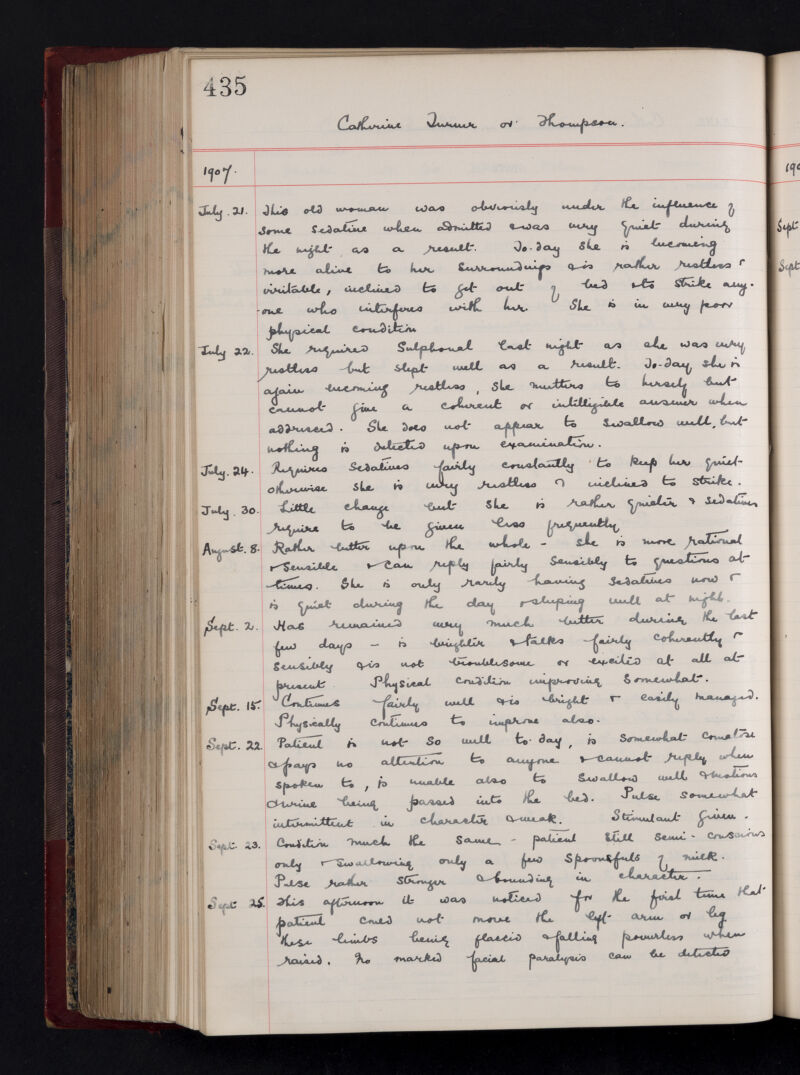 435
Catherine Turner or Thompson.
1907.
190
July. 21. This old woman was obviously under the influence of
some sedative when admitted & was very quiet during
the night as a result. To-day she is becoming
more alive to her surroundings & is rather restless &
irritable, inclined to get out of bed & to strike any-
-one who interferes with her. She is in very poor
physical condition
July 22. She required Sulphonal last night as she was very
restless but slept well as a result. To-day she is
again becoming restless, she mutters to herself but
cannot give a coherent or intelligible answer when
addressed. She does not appear to swallow well, but
nothing is detected upon examination.
July. 24. Requires sedatives fairly constantly to keep her quiet
otherwise she is very restless & inclined to strike.
July. 30. Little change but she is rather quieter & sedatives
require to be given less frequently
August. 8. Rather better upon the whole - she is more rational
& sensible & can reply fairly sensibly to questions at
times. She is only rarely having sedatives now &
is quiet during the day & sleeping well at night.
Sept. 2. Has remained very much better during the last
few days - is brighter & talks fairly coherently &
sensibly & is not troublesome or excited at all at
present. Physical condition improving somewhat.
Sept. 15. Continues fairly well & is bright & easily managed.
Physically continues to improve also.
Sept. 22. Patient is not so well to-day, is somewhat comatose
& pays no attention to anyone & cannot reply when
spoken to, is unable also to swallow well & motions
& urine being passed into the bed. Pulse somewhat
intermittent in character & weak. Stimulant given.
Sept. 23. Condition much the same - patient still semi-conscious
only & swallowing only a few spoonsfuls of milk.
Pulse rather stronger & bounding in character.
Sept 25. This afternoon it was noticed for the first time that
patient could not move the left arm or leg
these limbs being flaccid & falling powerless when
raised. No marked facial paralysis can be detected
Sept
Sept